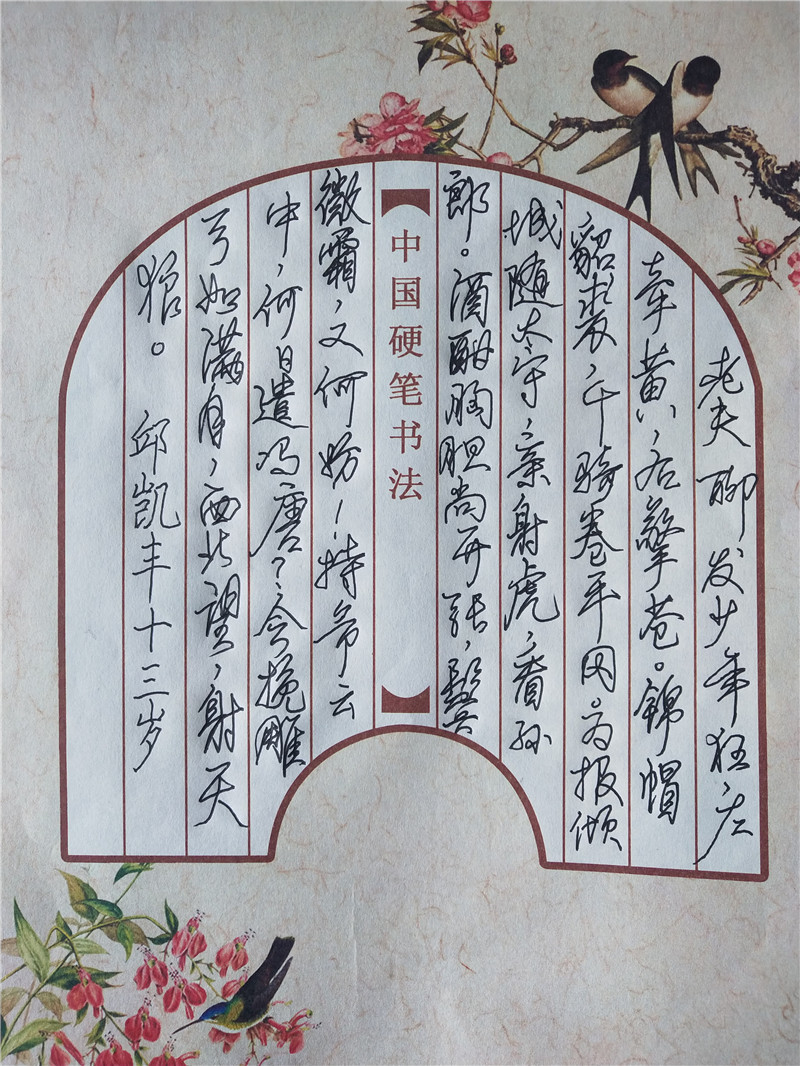 老夫聊发少年狂,左
牵黄,右擎苍。锦帽
貂裘,千骑卷平冈。为报倾
城随太守,亲射虎,看孙
郎。酒酣胸胆尚开张,鬓
中国硬笔书法
微霜,又何妨!持节云
中,何日遣冯唐?会挽雕
弓如满月,西北望,射天
狼。 邱凯丰十三岁